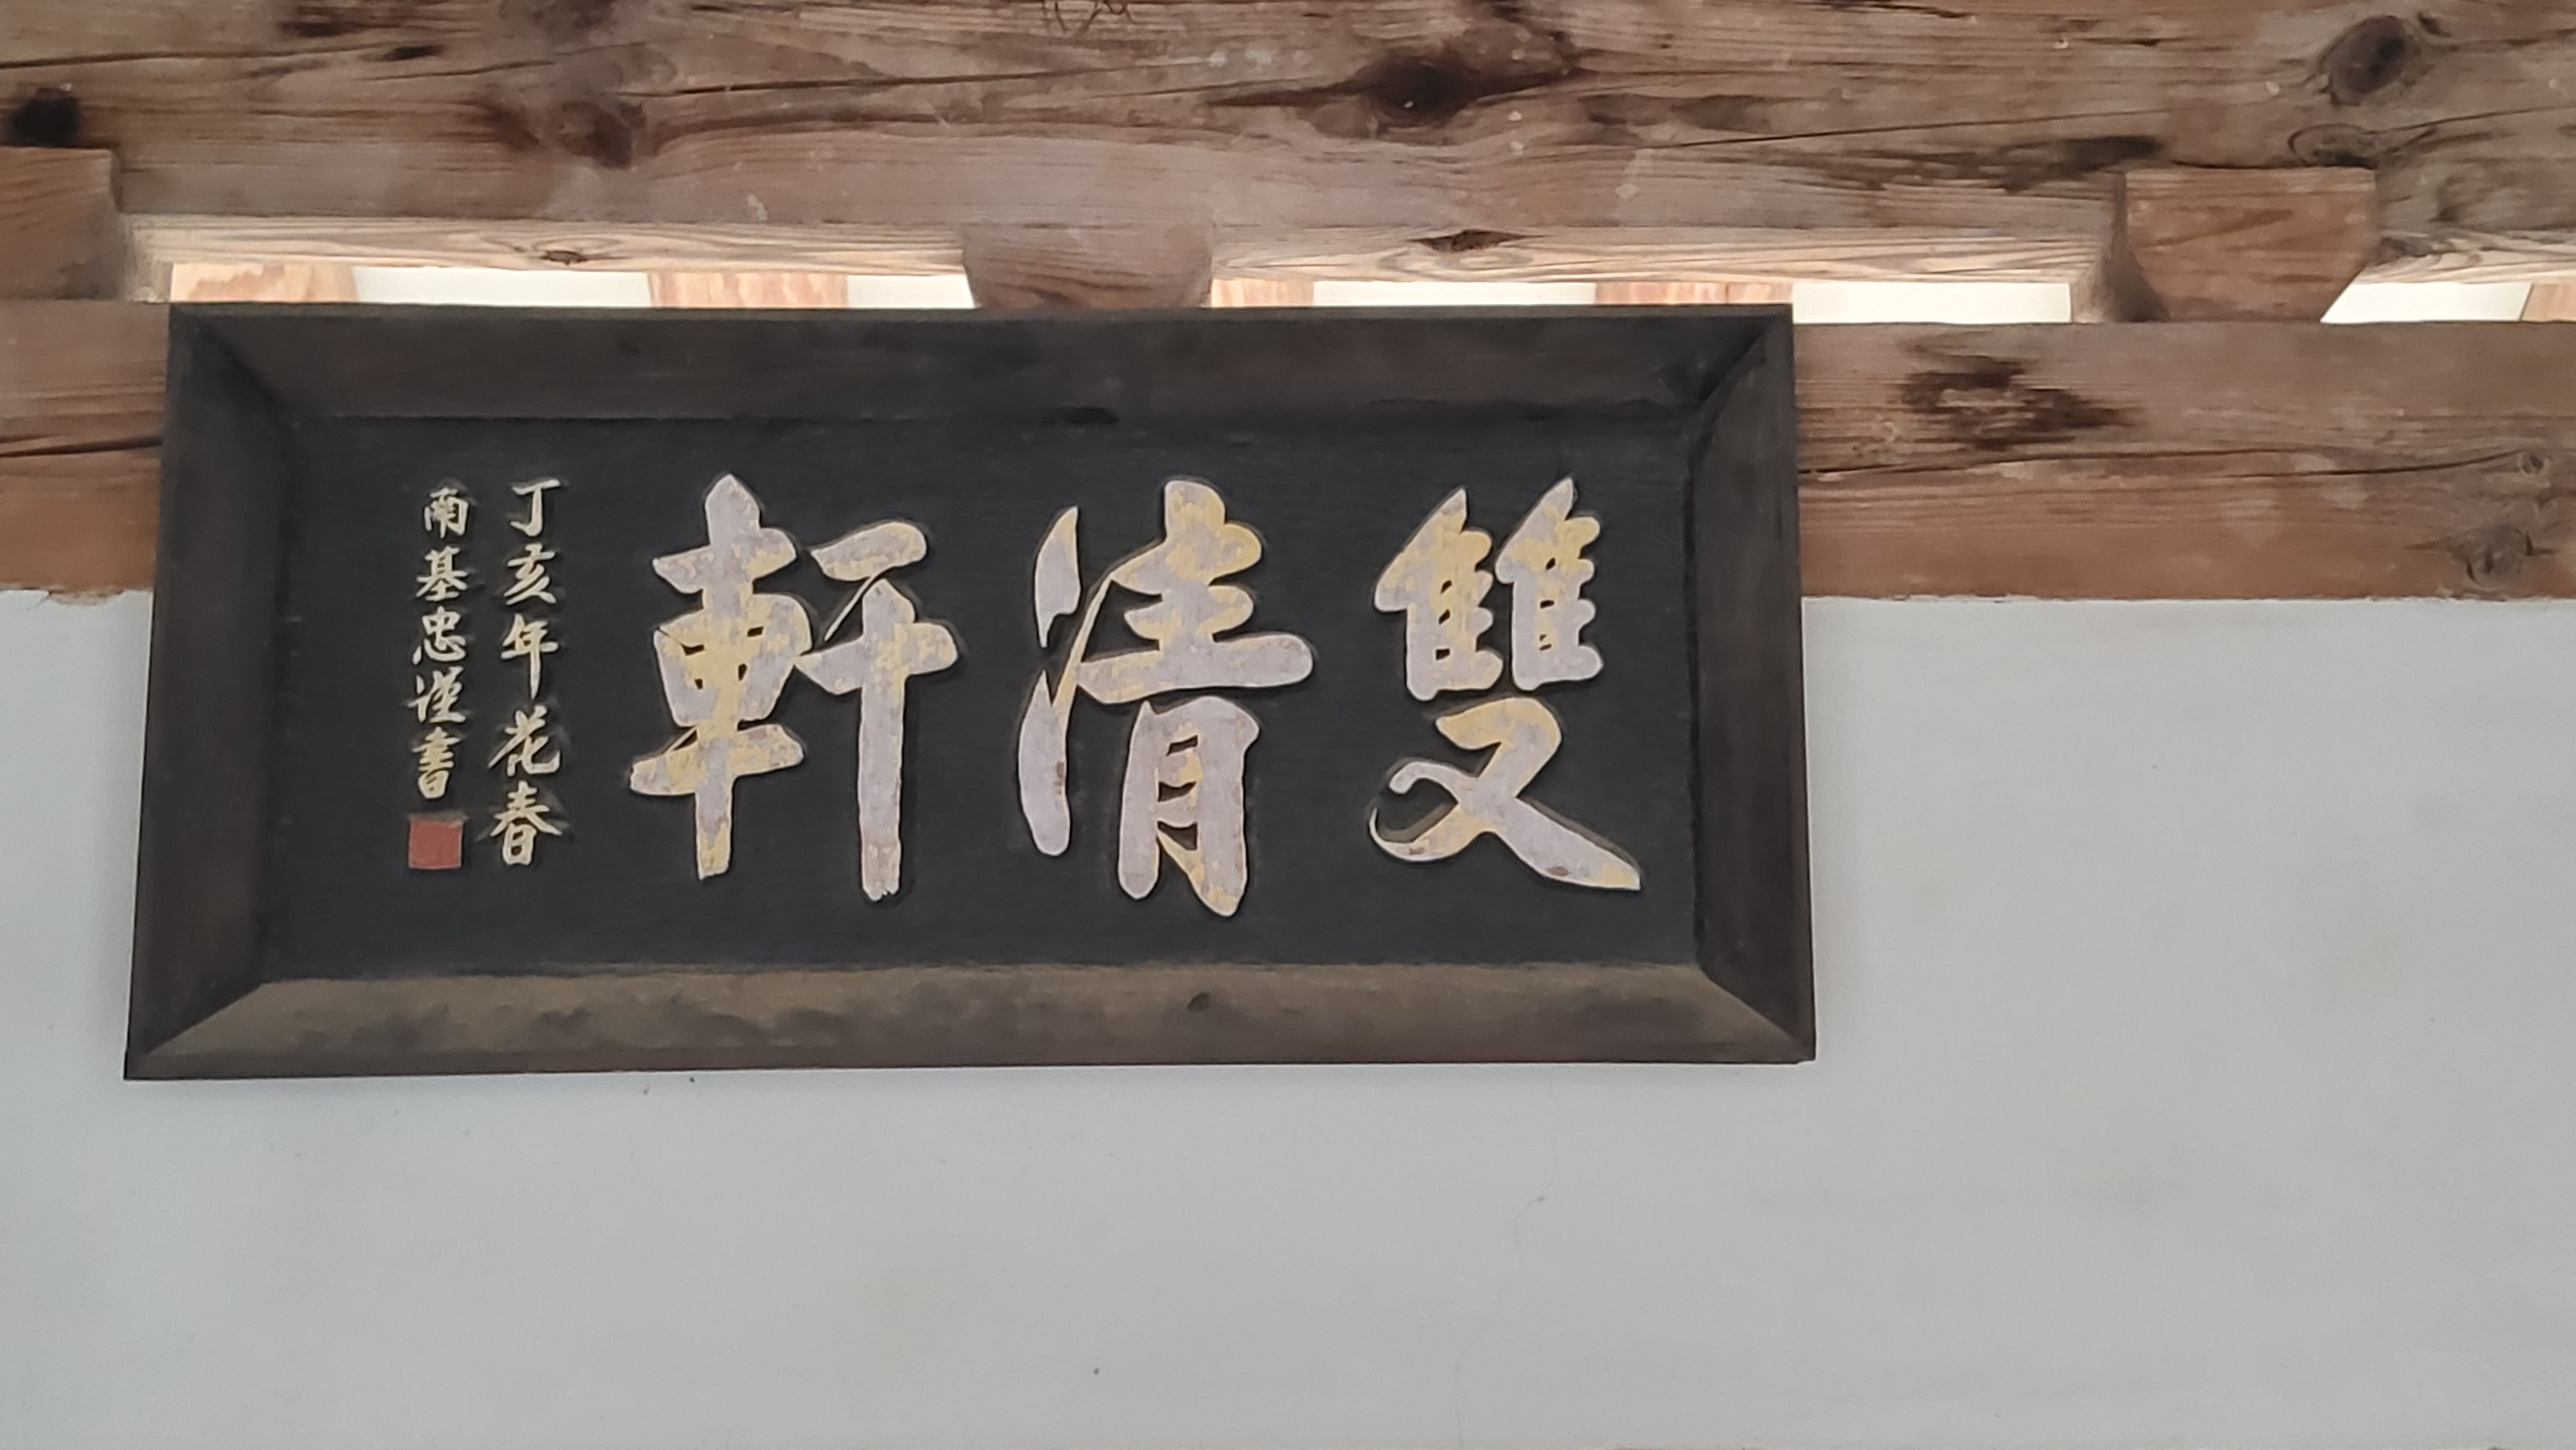 雙清軒
丁亥年花春
南基忠谨書